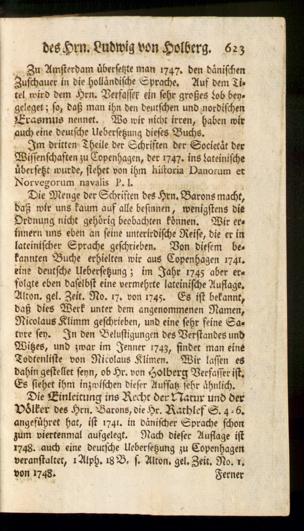 des Hrn. Ludwig von Holberg. 623
Zu Amsterdam übersetzte man 1747. den dänischen
Zuschauer in die holländische Sprache. Auf dem Ti-
tel wird dem Hrn. Verfasser ein sehr großes Lob bey-
geleget; so, daß man ihn den deutschen und nordischen
Erasmus nennet. Wo wir nicht irren, haben wir
auch eine deutsche Uebersetzung dieses Buchs.
Im dritten Theile der Schriften der Societät der
Wissenschaften zu Copenhagen, der 1747. ins lateinische
übersetzt wurde, stehet von ihm historia Danorum et
Norvegorum navalis P. I.
Die Menge der Schriften des Hrn. Barons macht,
daß wir uns kaum auf alle besinnen, wenigstens die
Ordnung nicht gehörig beobachten können. Wir er-
innern uns eben an seine unterirdische Reise, die er in
lateinischer Sprache geschrieben. Von diesem be-
kannten Buche erhielten wir aus Copenhagen 1741.
eine deutsche Uebersetzung; im Jahr 1745 aber er-
folgte eben daselbst eine vermehrte lateinische Auflage.
Alton. gel. Zeit. No. 17. von 1745. Es ist bekannt,
daß dies Werk unter dem angenommenen Namen,
Nicolaus Klimm geschrieben, und eine sehr feine Sa-
tyre sey. In den Belustigungen des Verstandes und
Witzes, und zwar im Jenner 1743, findet man eine
Todtenliste von Nicolaus Klimen. Wir lassen es
dahin gestellet seyn, ob Hr. von Holberg Verfasser ist.
Es siehet ihm inzwischen dieser Aufsatz sehr ähnlich.
Die Einleitung ins Recht der Natur und der
Völker des Hrn. Barons, die Hr. Rathlef S. 4-6.
angeführet hat, ist 1741. in dänischer Sprache schon
zum viertenmal aufgelegt. Nach dieser Auflage ist
1748. auch eine deutsche Uebersetzung zu Copenhagen
veranstaltet, 1 Alph. 18 B. s. Alton. gel. Zeit. No. 1.
von 1748. Ferner